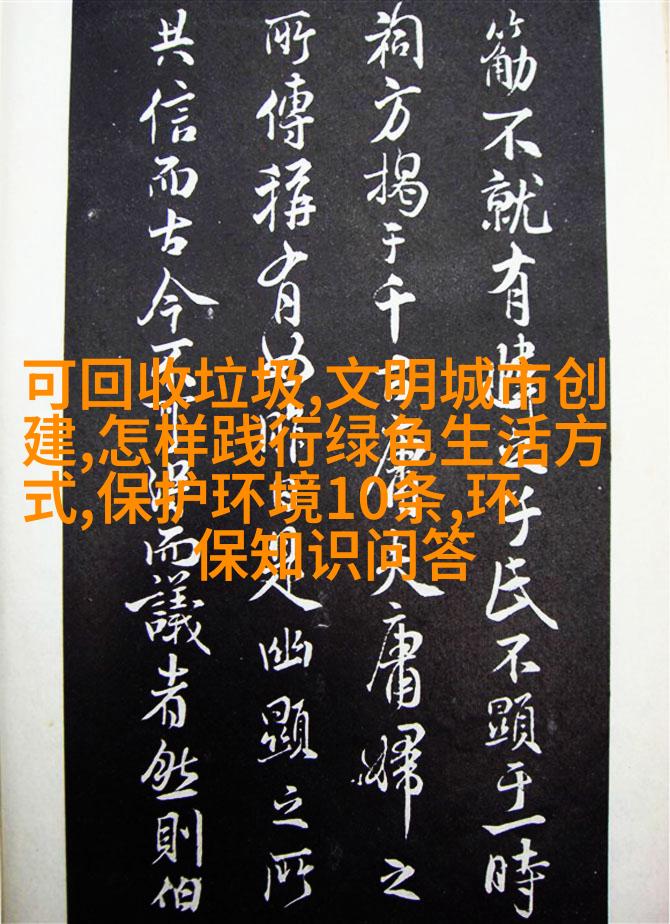 不就有于民不顯于一時
祠方揭于千古庸夫庸婦之
所傳稱有如昨日是幽顯之所
共信而古今不可得而議者然則伯
可回收垃圾,文明城市创
建,怎样践行绿色生活方
式,保护环境10条,环
保知识问答